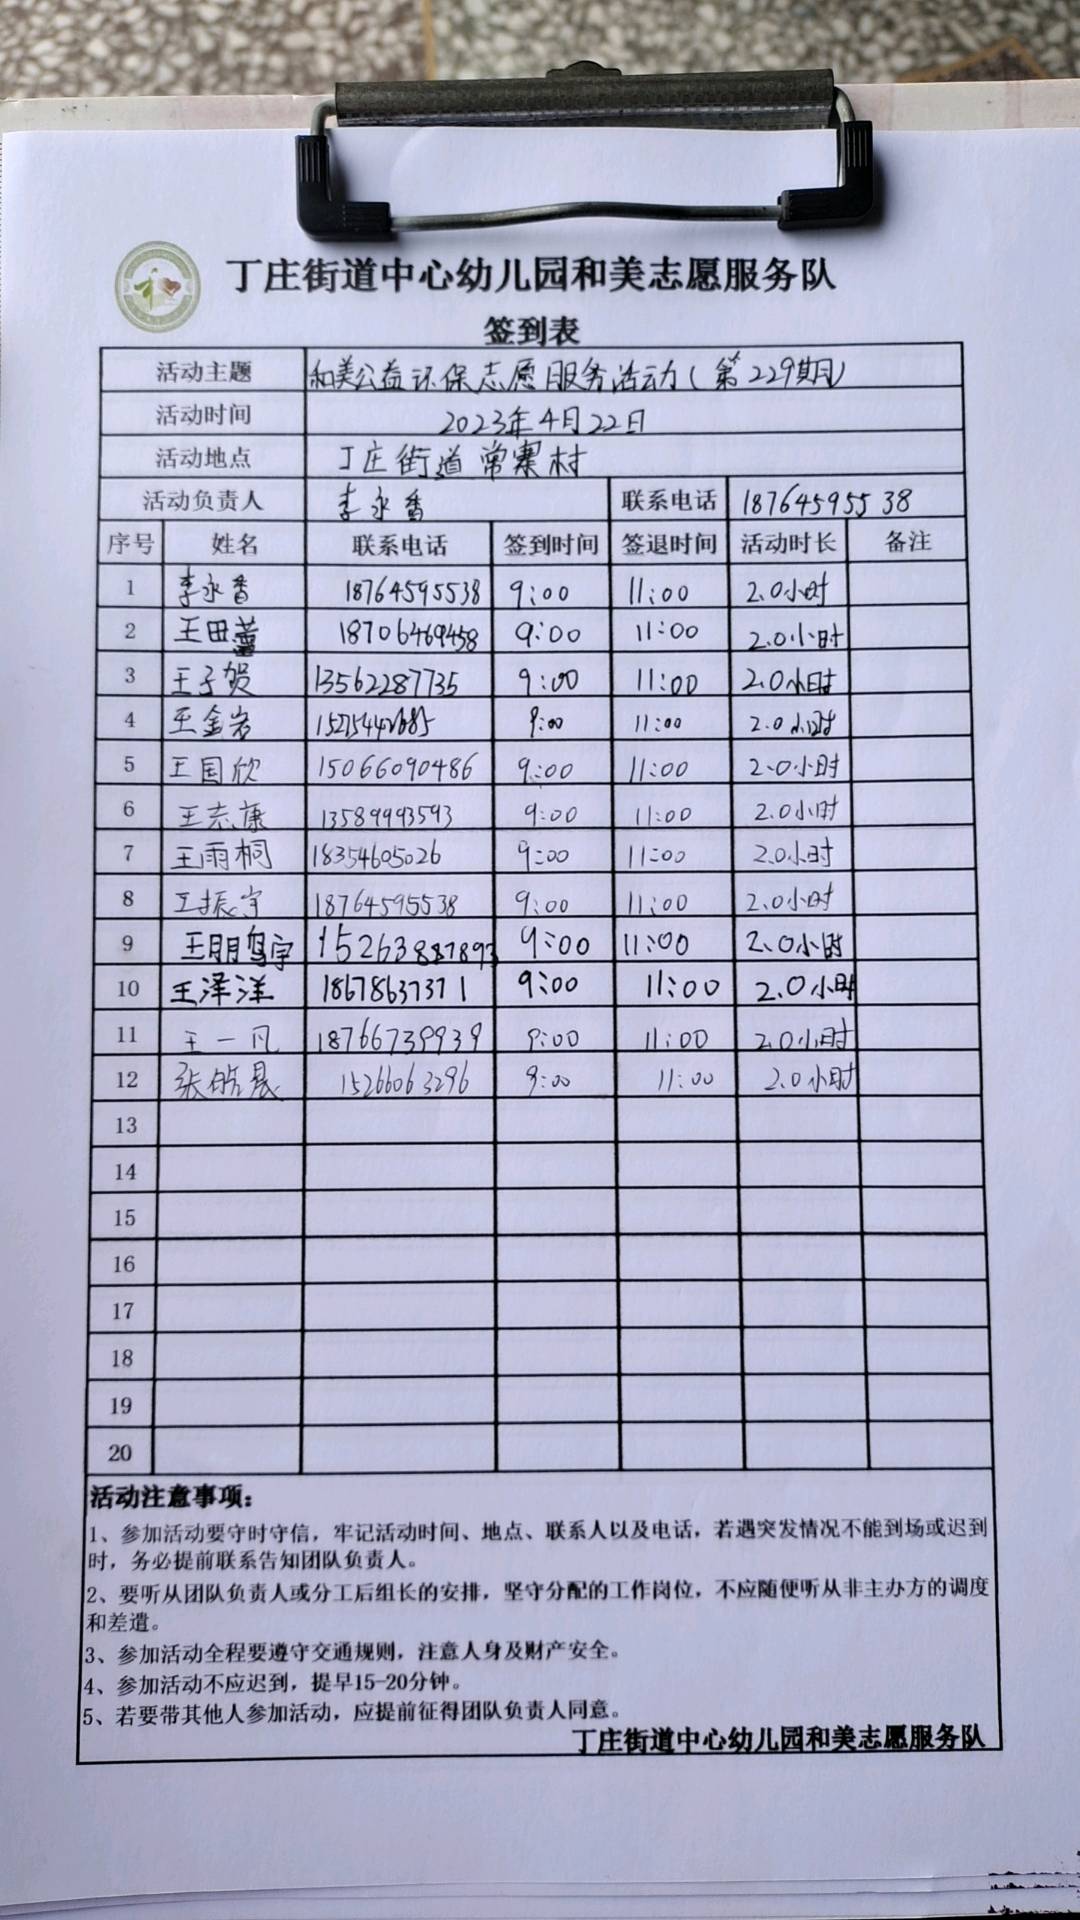 丁庄街道中心幼儿园和美志愿服务队
签到表
活动主题 和美公益环保志愿服务活动(第229期)
活动时间 2023年4月22日
活动地点 丁庄街道常寨村
活动负责人 李永香 联系电话 18764595538
序号 姓名 联系电话 签到时间 签退时间 活动时长 备注
1 李永香 18764595538 9:00 11:00 2.0小时
2 王田 18706469458 9:00 11:00 2.0小时
3 王子贺 13562287735 9:00 11:00 2.0小时
4 王金岩 9:00 11:00 2.0小时
5 王国欣 15066090486 9:00 11:00 2.0小时
6 王志康 13589993593 9:00 11:00 2.0小时
7 王雨桐 18354605026 9:00 11:00 2.0小时
8 王振宇 18764595538 9:00 11:00 2.0小时
9 15263887893 9:00 11:00 2.0小时
10 王泽洋 18678637371 9:00 11:00 2.0小时
11 王一凡 18766739939 9:00 11:00 2.0小时
12 张皓晨 15266063296 9:00 11:00 2.0小时
13
14
15
16
17
18
19
20
活动注意事项:
1、参加活动要守时守信,牢记活动时间、地点、联系人以及电话,若遇突发情况不能到场或迟到
时,务必提前联系告知团队负责人。
2、要听从团队负责人或分工后组长的安排,坚守分配的工作岗位,不应随便听从非主办方的调度
和差遣。
3、参加活动全程要遵守交通规则,注意人身及财产安全。
4、参加活动不应迟到,提早15-20分钟。
5、若要带其他人参加活动,应提前征得团队负责人同意。
丁庄街道中心幼儿园和美志愿服务队